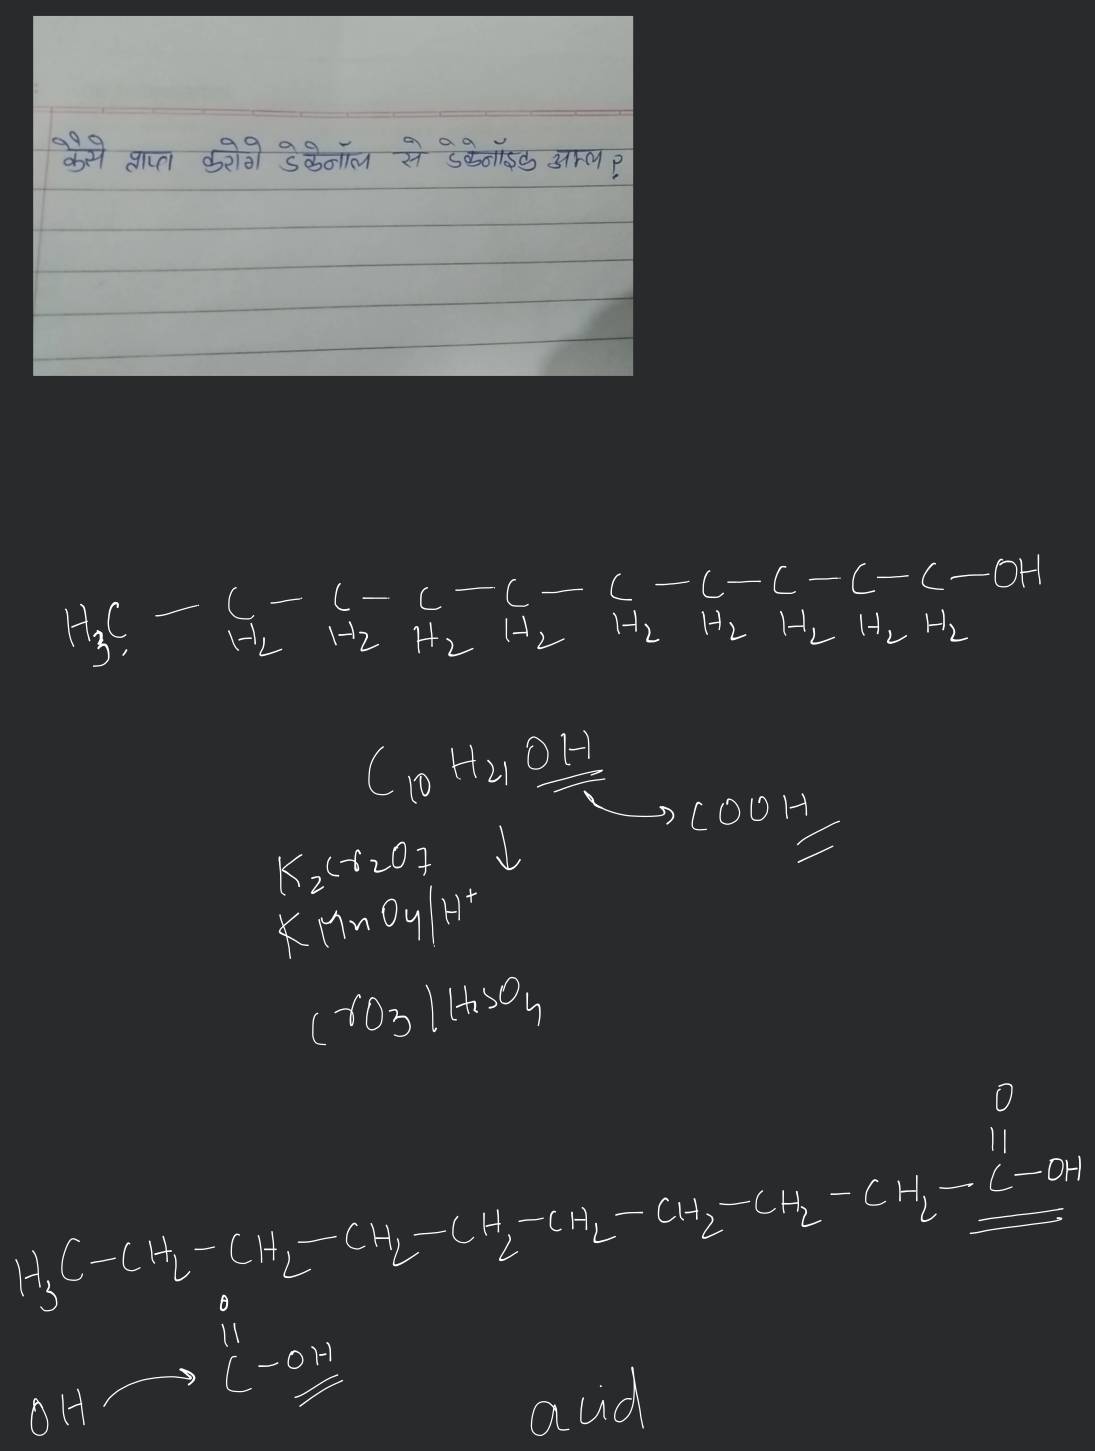 कैसे प्राप्त करोगे डेकेनॉल से डेकेनॉइक अम्ल ?
H3C — C — C — C — C — C — C — C — C — C — OH
H2 H2 H2 H2 H2 H2 H2 H2 H2
C10 H21 OH
COOH
K2Cr2O7
KMnO4/H+
CrO3 | H2SO4
O
||
H3C — CH2 — CH2 — CH2 — CH2 — CH2 — CH2 — CH2 — CH2 — C — OH
O
||
OH C — OH
acid